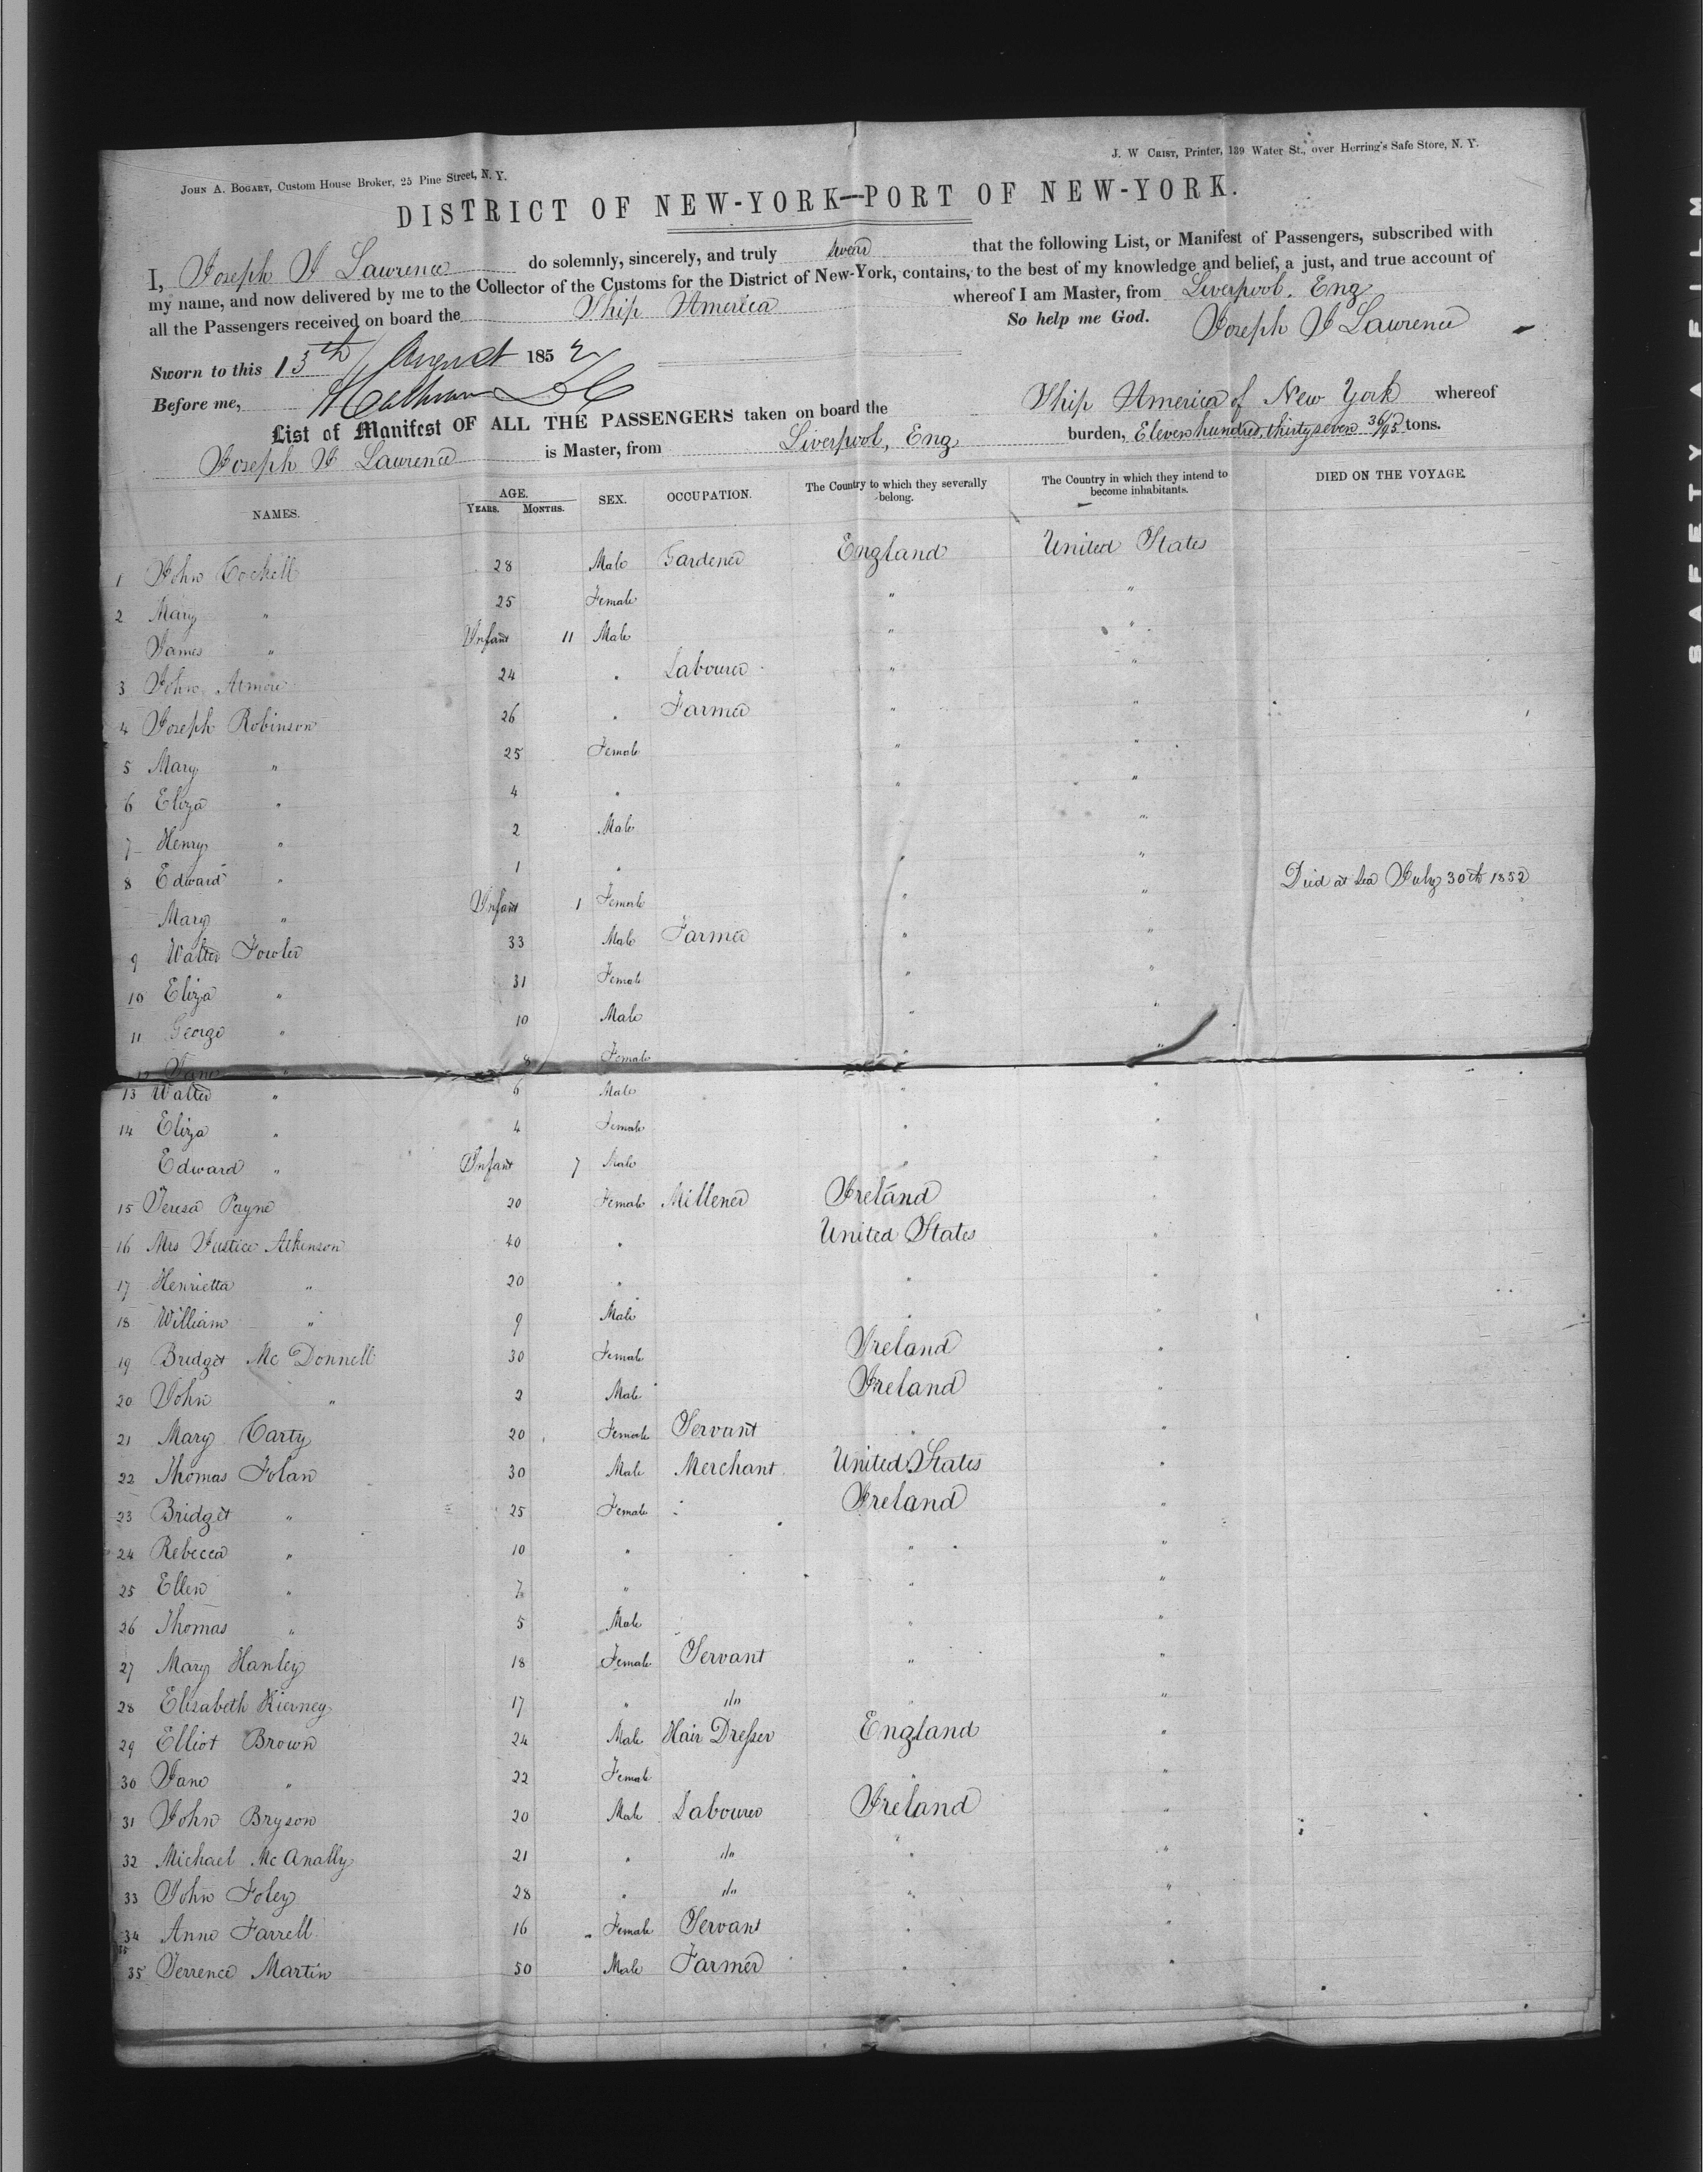 JOHN A. BOGART, Custom House Broker, 25 Pine Street, N. Y.
J. W CRIST, Printer, 139 Water St., over Herring's Safe Store, N. Y.
DISTRICT OF NEW-YORK—PORT OF NEW-YORK.
I, Joseph J Lawrence do solemnly, sincerely, and truly swear that the following List, or Manifest of Passengers, subscribed with
my name, and now delivered by me to the Collector of the Customs for the District of New-York, contains, to the best of my knowledge and belief, a just, and true account of
all the Passengers received on board the Ship America whereof I am Master, from Liverpool, Eng
So help me God. Joseph J Lawrence
Sworn to this 13th August 1852
Before me,
List of Manifest OF ALL THE PASSENGERS taken on board the Ship America of New York whereof
Joseph J Lawrence is Master, from Liverpool, Eng burden, Eleven hundred, thirty seven 36/95 tons.
NAMES. AGE. YEARS. MONTHS. SEX. OCCUPATION. The Country to which they severally belong. The Country in which they intend to become inhabitants. DIED ON THE VOYAGE.
1 John Cockell 28 Male Gardener England United States
2 Mary " 25 Female " "
James " Infant 11 Male " "
3 John Atmore 24 " Labourer " "
4 Joseph Robinson 26 " Farmer " "
5 Mary " 25 Female " "
6 Eliza " 4 " " "
7 Henry " 2 Male "
8 Edward " 1 " " "
Mary " Infant 1 Female " " Died at Sea July 30th 1852
9 Walter Fowler 33 Male Farmer " "
10 Eliza " 31 Female " "
11 George " 10 Male " "
12 Jane " 8 Female " "
13 Walter " 6 Male " "
14 Eliza " 4 Female " "
Edward " Infant 7 Male " "
15 Teresa Payne 20 Female Millener Ireland "
16 Mrs Justice Atkinson 40 " United States "
17 Henrietta " 20 " " "
18 William " 9 Male " "
19 Bridget Mc Donnell 30 Female Ireland "
20 John " 2 Male Ireland "
21 Mary Carty 20 Female Servant " "
22 Thomas Folan 30 Male Merchant United States "
23 Bridget " 25 Female Ireland "
24 Rebecca " 10 " " "
25 Ellen " 7 " " "
26 Thomas " 5 Male " "
27 Mary Hanley 18 Female Servant " "
28 Elisabeth Kierney 17 " do " "
29 Elliot Brown 24 Male Hair Dresser England "
30 Jane " 22 Female " "
31 John Bryson 20 Male Labourer Ireland "
32 Michael Mc Anally 21 " do " "
33 John Foley 28 " do " "
34 Anne Farrell 16 Female Servant " "
35 Terrence Martin 50 Male Farmer " "
SAFETY FILM